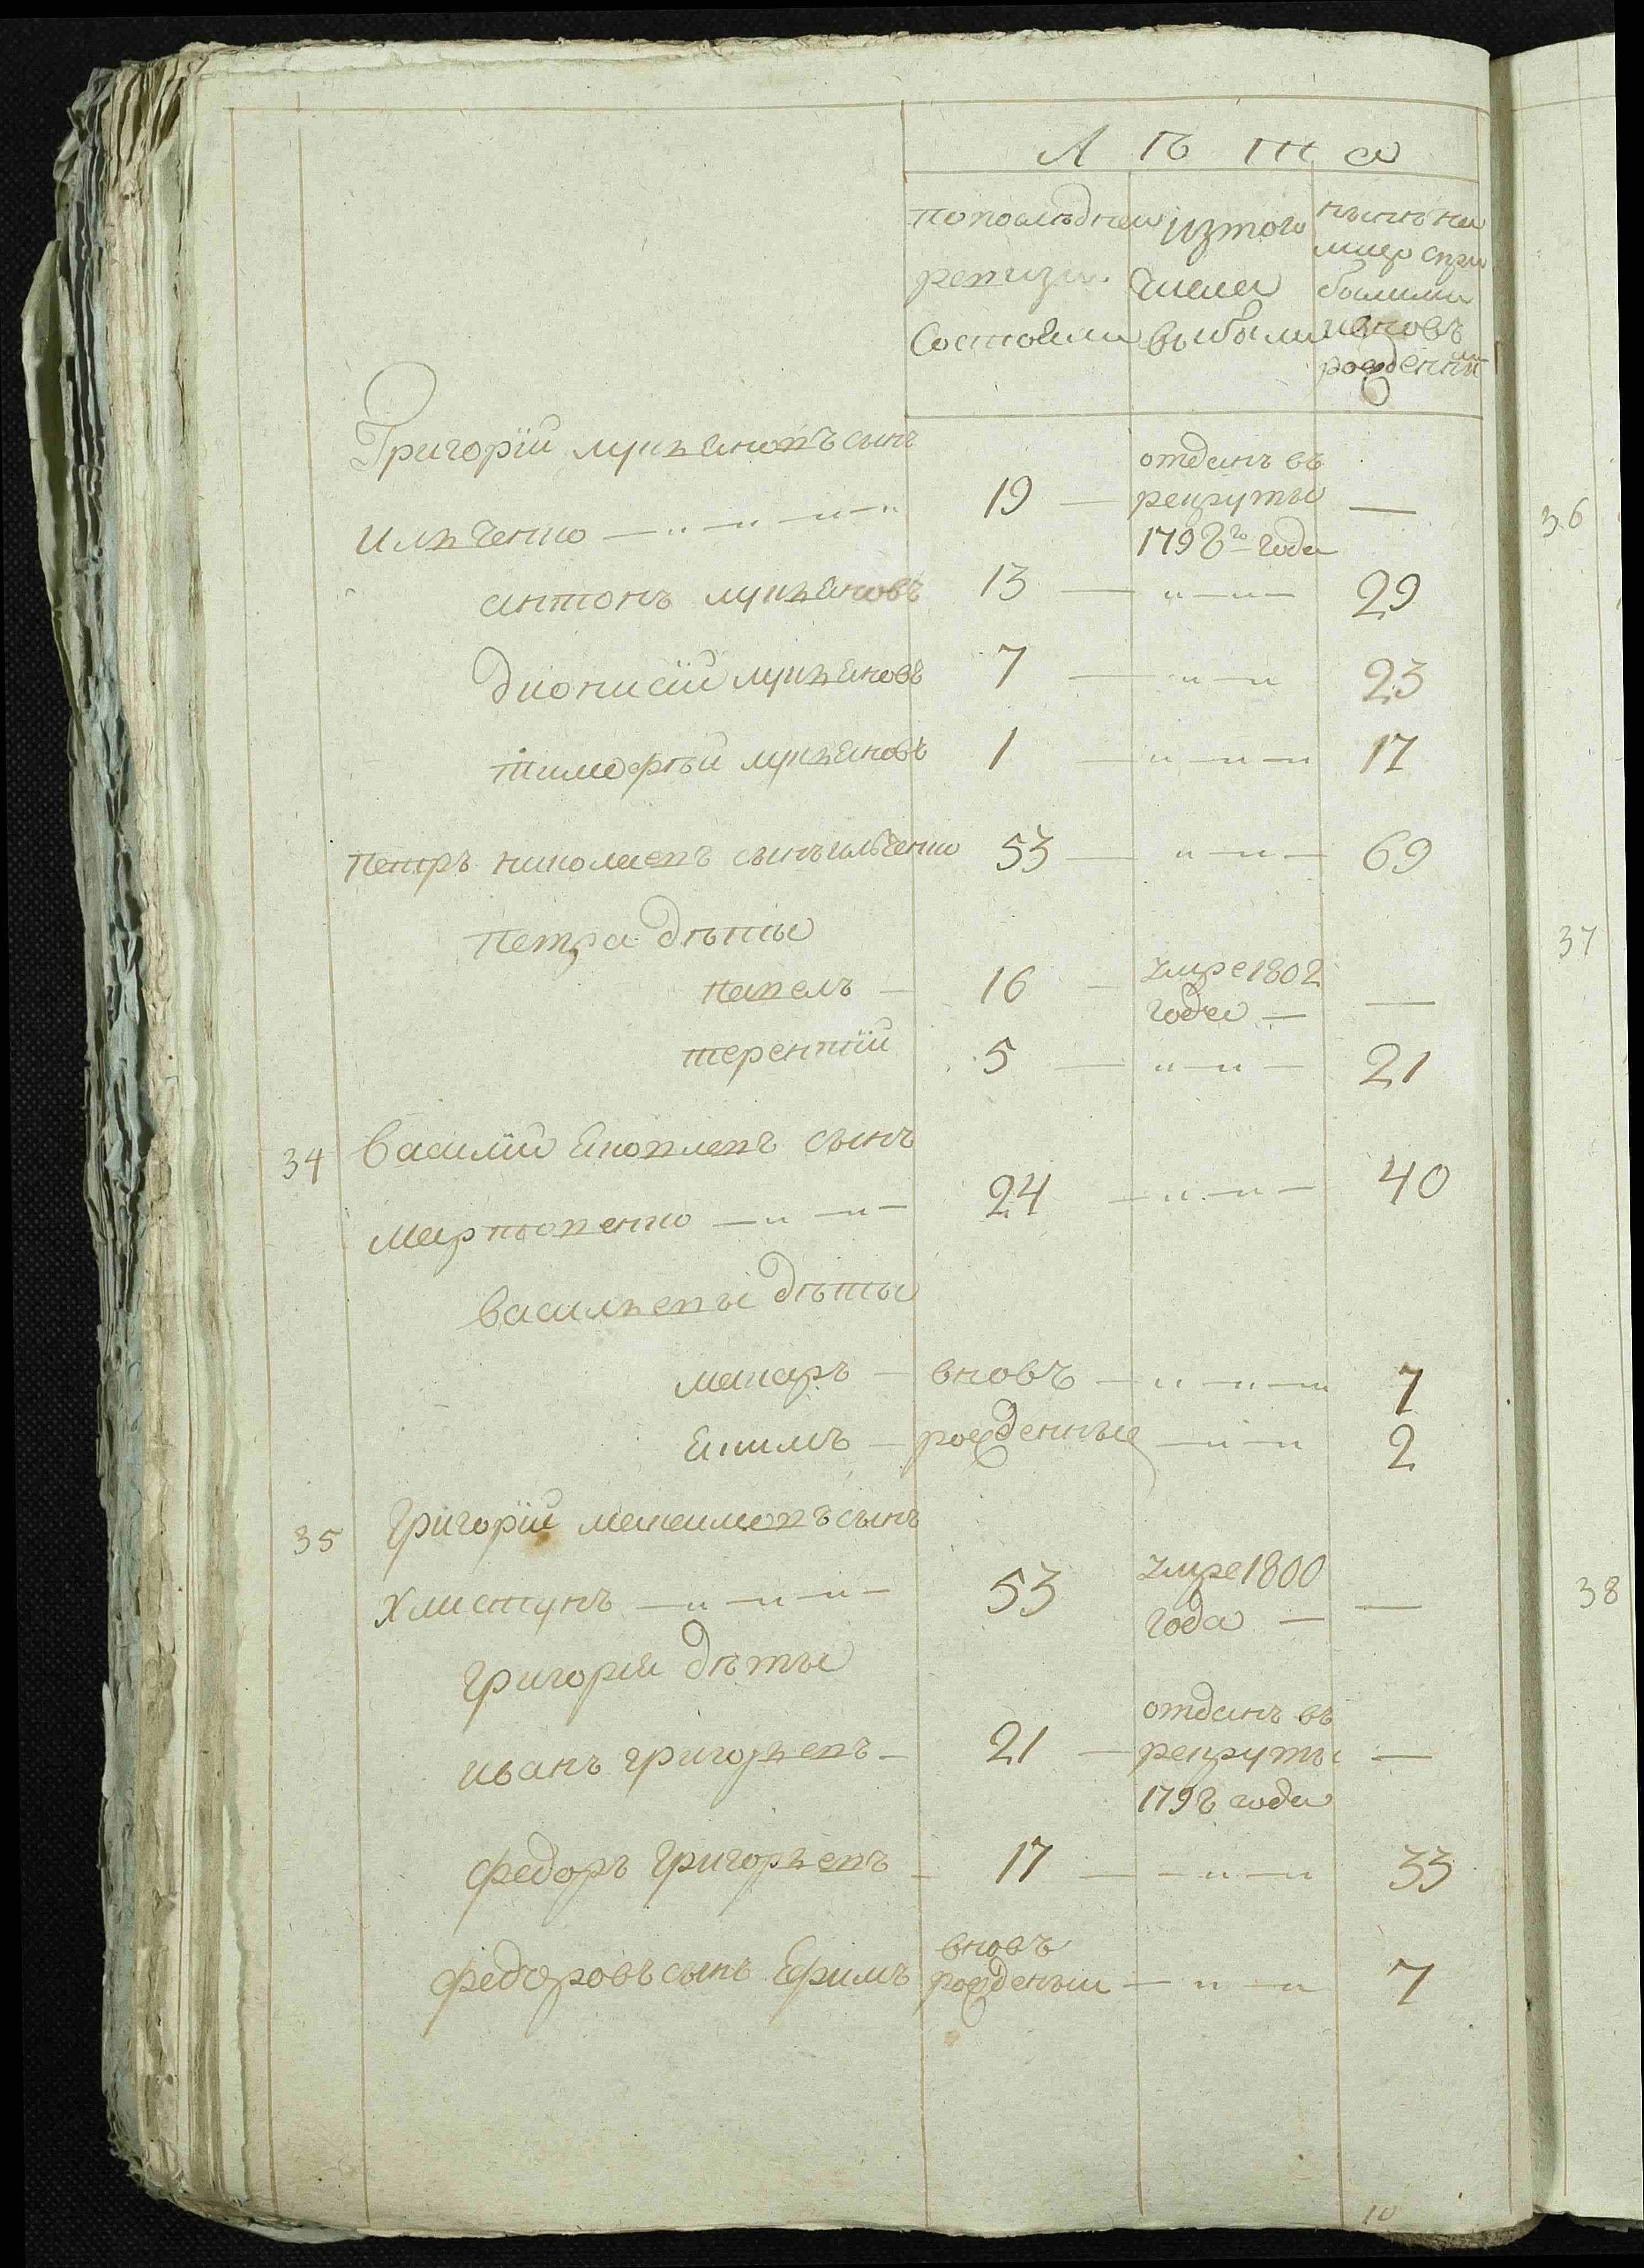 Лѣта
попослѣдней изтого нынѣна
ревизіи числа лицо спри
состояли выбыли былыми
ивновь
рожденны
Григорїй лукьяновъ сынъ
ильченко 19 отданъ въ рекруты 1798го года
антонъ лукьяновъ 13 29
дионисїй лукьяновъ 7 23
тимофѣй лукьяновъ 1 17
петръ николаевъ сынъ ильченко 53 69
петра дѣты
павелъ 16 умре 1802 года
терентїй 5 21
34 василїй яковлевъ сынъ
мартовенко 24 40
васильевы дѣты
макаръ вновь 7
екимъ рожденные 2
35 григорїй максимовъ сынъ
хлистунъ 53 умре 1800 года
григорія дѣты
иванъ григорьевъ 21 отданъ въ рекруты 1798 года
федоръ григорьевъ 17 33
федоровъ сынъ Ефимъ вновь рожденыи 7
10
36
37
38